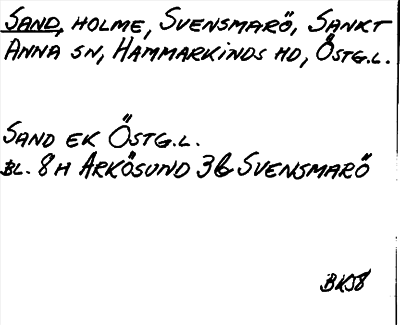 SAND, HOLME, SVENSMARÖ, SANKT
ANNA SN, HAMMARKINDS HD, ÖSTG.L.
SAND EK ÖSTG.L.
BL. 8H ARKÖSUND 3b SVENSMARÖ